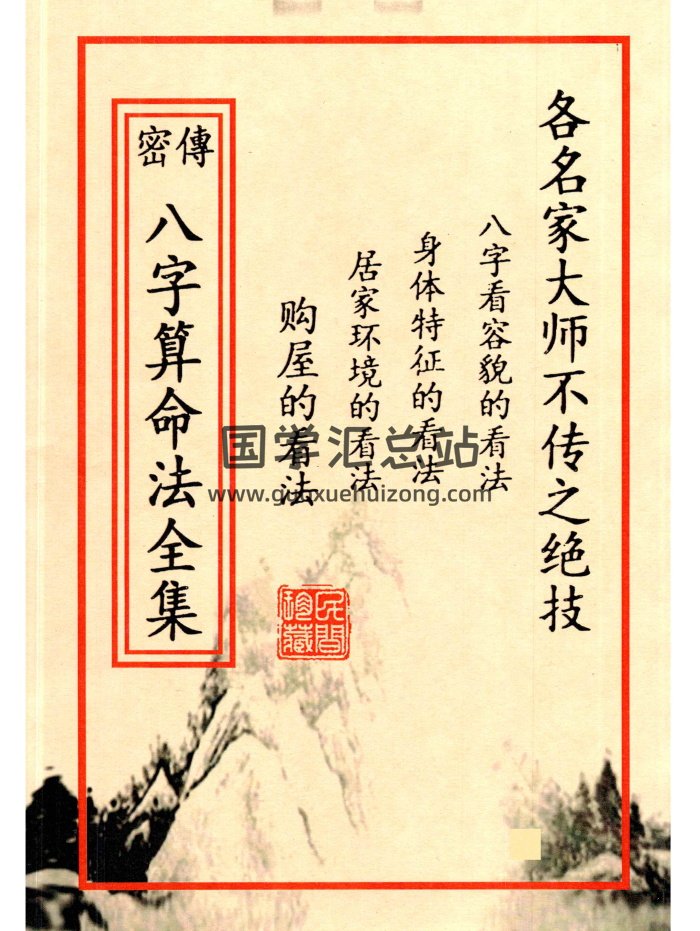 各名家大师不传之绝技
八字看容貌的看法
身体特征的看法
居家环境的看法
购屋的看法
密傳
八字算命法全集
民間
珍藏
国学汇总站
www.guoxuehuizong.com